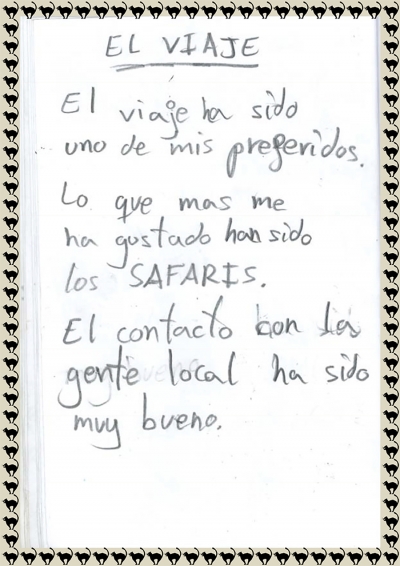 EL VIAJE
El viaje ha sido
uno de mis preferidos.
Lo que mas me
ha gustado han sido
los SAFARIS.
El contacto con la
gente local ha sido
muy bueno.